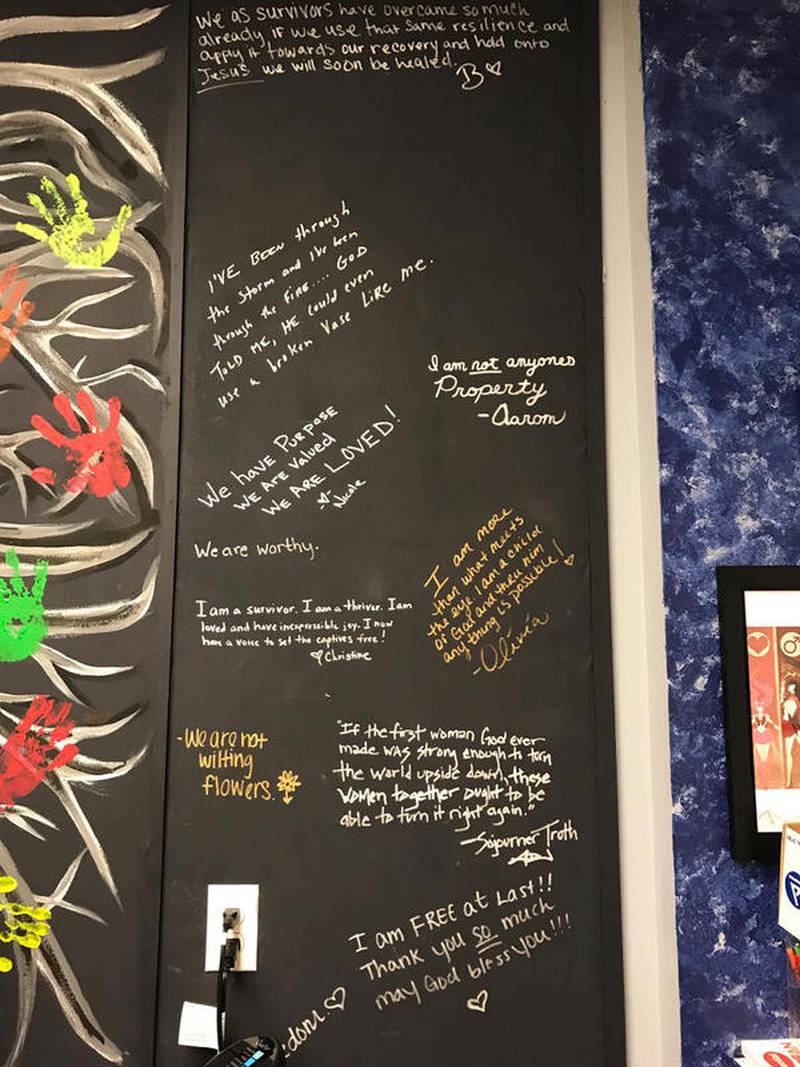 We as survivors have overcome so much
already if we use that same resilience and
apply it towards our recovery and hold onto
Jesus we will soon be healed.
B
I'VE BEEN through
the storm and I've been
through the FIRE.... GOD
TOLD ME, HE could even
use a broken Vase LIKE me.
I am not anyones
Property
-Aarom
We HAVE PURPOSE
WE ARE Valued
WE ARE LOVED!
- Nicole
We are worthy.
I am more
than what meets
the eye. I am a child
of God and thru him
anything is possible!
-Olivia
I am a survivor. I am a thriver. I am
loved and have inexpressible joy. I now
have a voice to set the captives free!
Christine
-We are not
wilting
flowers.
"If the first woman God ever
made was strong enough to turn
the world upside down, these
women together ought to be
able to turn it right again."
-Sojourner Troth
I am FREE at Last!!
Thank you so much
may God bless you!!!